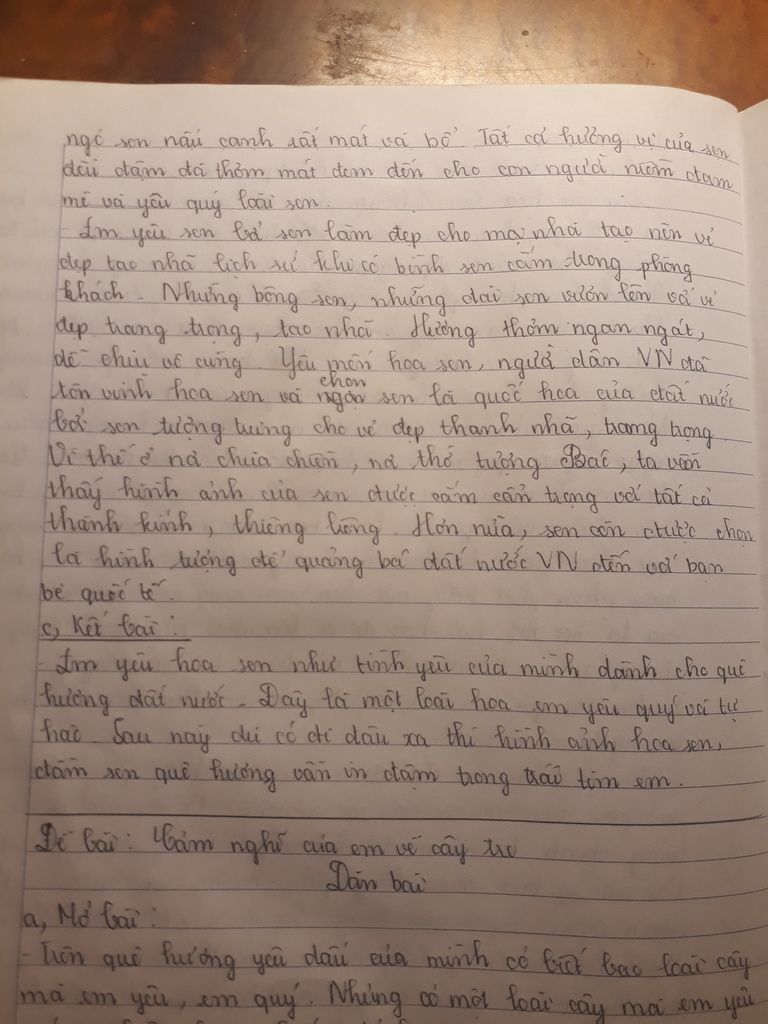 ngó sen nấu canh rất mát và bổ. Tất cả hương vị của sen
đều đậm đà thơm mát đem đến cho con người niềm đam
mê và yêu quý loài sen.
- Em yêu sen bởi sen làm đẹp cho mọi nhà tạo nên vẻ
đẹp tao nhã lịch sự khi có bình sen cắm trong phòng
khách. Những bông sen, những đài sen vươn lên với vẻ
đẹp trang trọng, tao nhã. Hương thơm ngan ngát,
dễ chịu vô cùng. Yêu mến hoa sen, người dân VN đã
tôn vinh hoa sen và chọn sen là quốc hoa của đất nước
bởi sen tượng trưng cho vẻ đẹp thanh nhã, trang trọng.
Vì thế ở nơi chùa chiền, nơi thờ tượng Bác, ta vẫn
thấy hình ảnh của sen được cắm cẩn trọng với tất cả
thành kính, thiêng liêng. Hơn nữa, sen còn được chọn
là hình tượng để quảng bá đất nước VN đến với bạn
bè quốc tế.
c, Kết bài:
- Em yêu hoa sen như tình yêu của mình dành cho quê
hương đất nước. Đây là một loài hoa em yêu quý và tự
hào. Sau này dù có đi đâu xa thì hình ảnh hoa sen,
đầm sen quê hương vẫn in đậm trong trái tim em.
Đề bài: Cảm nghĩ của em về cây tre
Dàn bài
a, Mở bài:
- Trên quê hương yêu dấu của mình có biết bao loài cây
mà em yêu, em quý. Nhưng có một loài cây mà em yêu